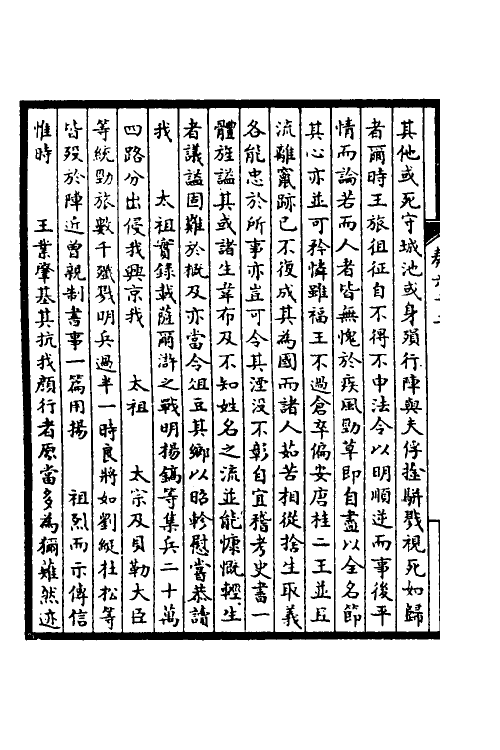 其他或死守城池或身殞行陣與夫俘擒駢戮視死如歸
者爾時王旅徂征自不得不申法令以明順逆而事後平
情而論若而人者皆無愧於疾風勁草即自盡以全名節
其心亦並可矜憐雖福王不過倉卒偏安唐桂二王並且
流離竄跡已不復成其為國而諸人茹苦相從捨生取義
各能忠於所事亦豈可令其湮没不彰自宜稽考史書一
體旌謚其或諸生韋布及不知姓名之流並能慷慨輕生
者議謚固難於概及亦當令俎豆其鄉以昭軫慰當恭讀
我 太祖實錄載薩爾滸之戰明楊鎬等集兵二十萬
四路分出侵我興京我 太祖 太宗及貝勒大臣
等統勁旅數千殲戮明兵過半一時良將如劉綎杜松等
皆殁於陣近曾親制書事一篇用揚 祖烈而示傳信
惟時 王業肇基其抗我顏行者原當多為獮雖然迹